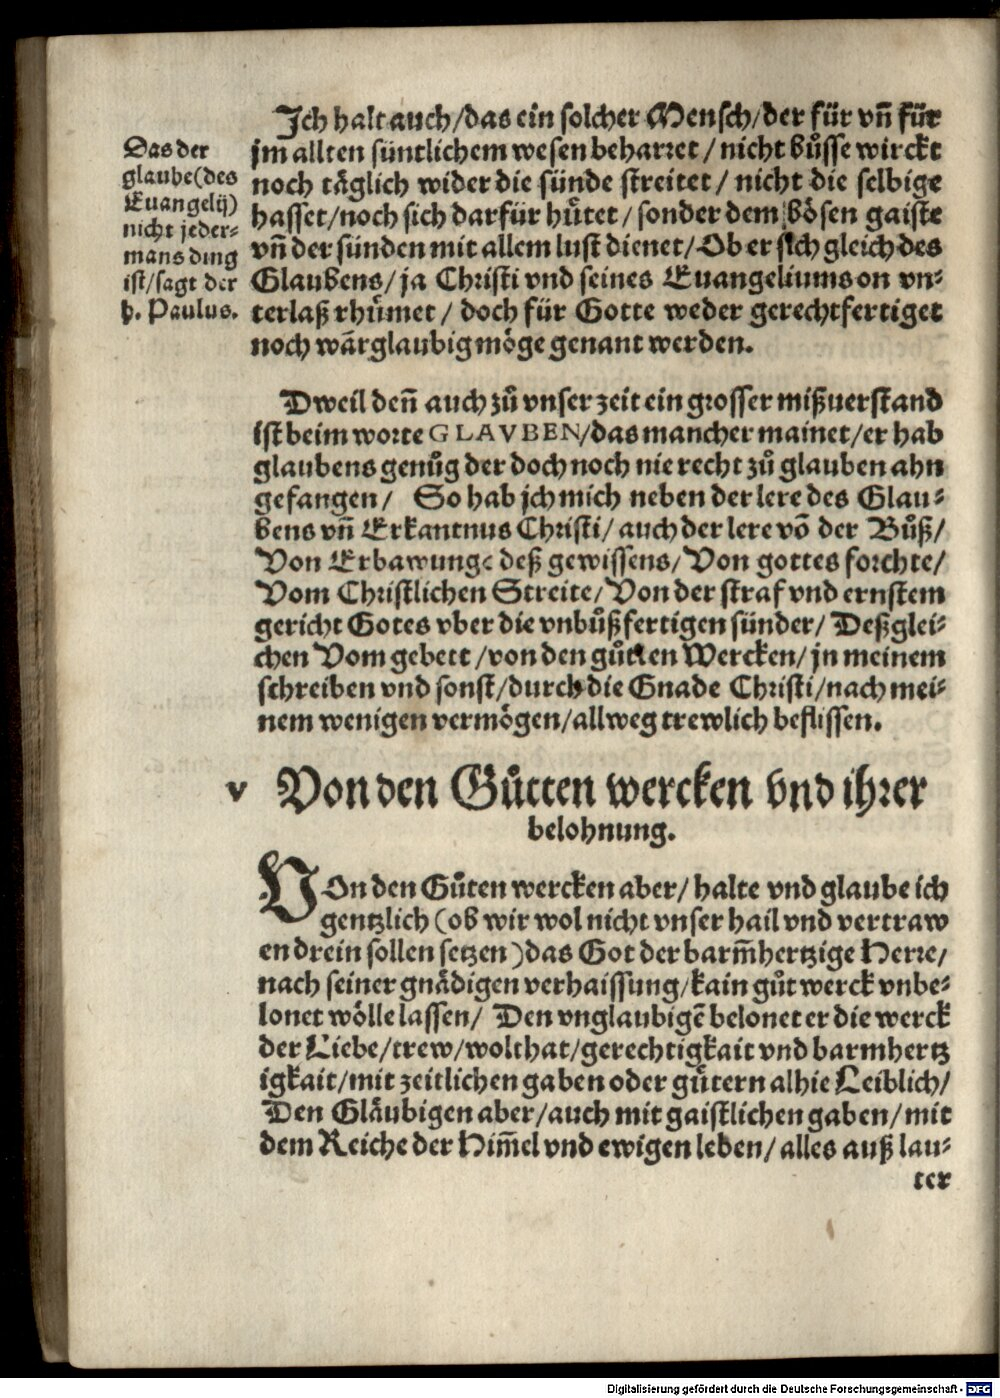 Jch halt auch/das ein solcher Mensch/der für vñ für
jm allten süntlichem wesen beharret/nicht bůsse wirckt
noch täglich wider die sünde streitet/ nicht die selbige
hasset/noch sich darfür hůtet/ sonder dem bösen gaiste
vñ der sünden mit allem lust dienet/Ob er sich gleich des
Glaubens/ja Christi vnd seines Euangeliums on vn⸗
terlaß rhümet/ doch für Gotte weder gerechtfertiget
noch wārglaubig möge genant werden.
Das der
glaube(des
Euangelij)
nicht jeder⸗
mans ding
ist/sagt der
h. Paulus.
Dweil deñ auch zů vnser zeit ein grosser mißuerstand
ist beim worte GLAVBEN/das mancher mainet/er hab
glaubens genůg der doch noch nie recht zů glauben ahn
gefangen/ So hab jch mich neben der lere des Glau⸗
bens vñ Erkantnus Christi/ auch der lere võ der Bůß/
Von Erbawunge deß gewissens/Von gottes forchte/
Vom Christlichen Streite/Von der straf vnd ernstem
gericht Gotes vber die vnbůßfertigen sünder/ Deßglei⸗
chen Vom gebett/von den gůtten Wercken/jn meinem
schreiben vnd sonst/durch die Gnade Christi/nach mei⸗
nem wenigen vermögen/allweg trewlich beflissen.
v Von den Gůtten wercken vnd ihrer
belohnung.
VOn den Gůten wercken aber/ halte vnd glaube ich
gentzlich (ob wir wol nicht vnser hail vnd vertraw
en drein sollen setzen)das Got der barm̃hertzige Herre/
nach seiner gnädigen verhaissung/kain gůt werck vnbe⸗
lonet wölle lassen/ Den vnglaubigẽ belonet er die werck
der Liebe/trew/wolthat/gerechtigkait vnd barmhertz
igkait/mit zeitlichen gaben oder gůtern alhie Leiblich/
Den Gläubigen aber/auch mit gaistlichen gaben/mit
dem Reiche der Him̃el vnd ewigen leben/alles auß lau⸗
ter
Digitalisierung gefördert durch die Deutsche Forschungsgemeinschaft - DFG